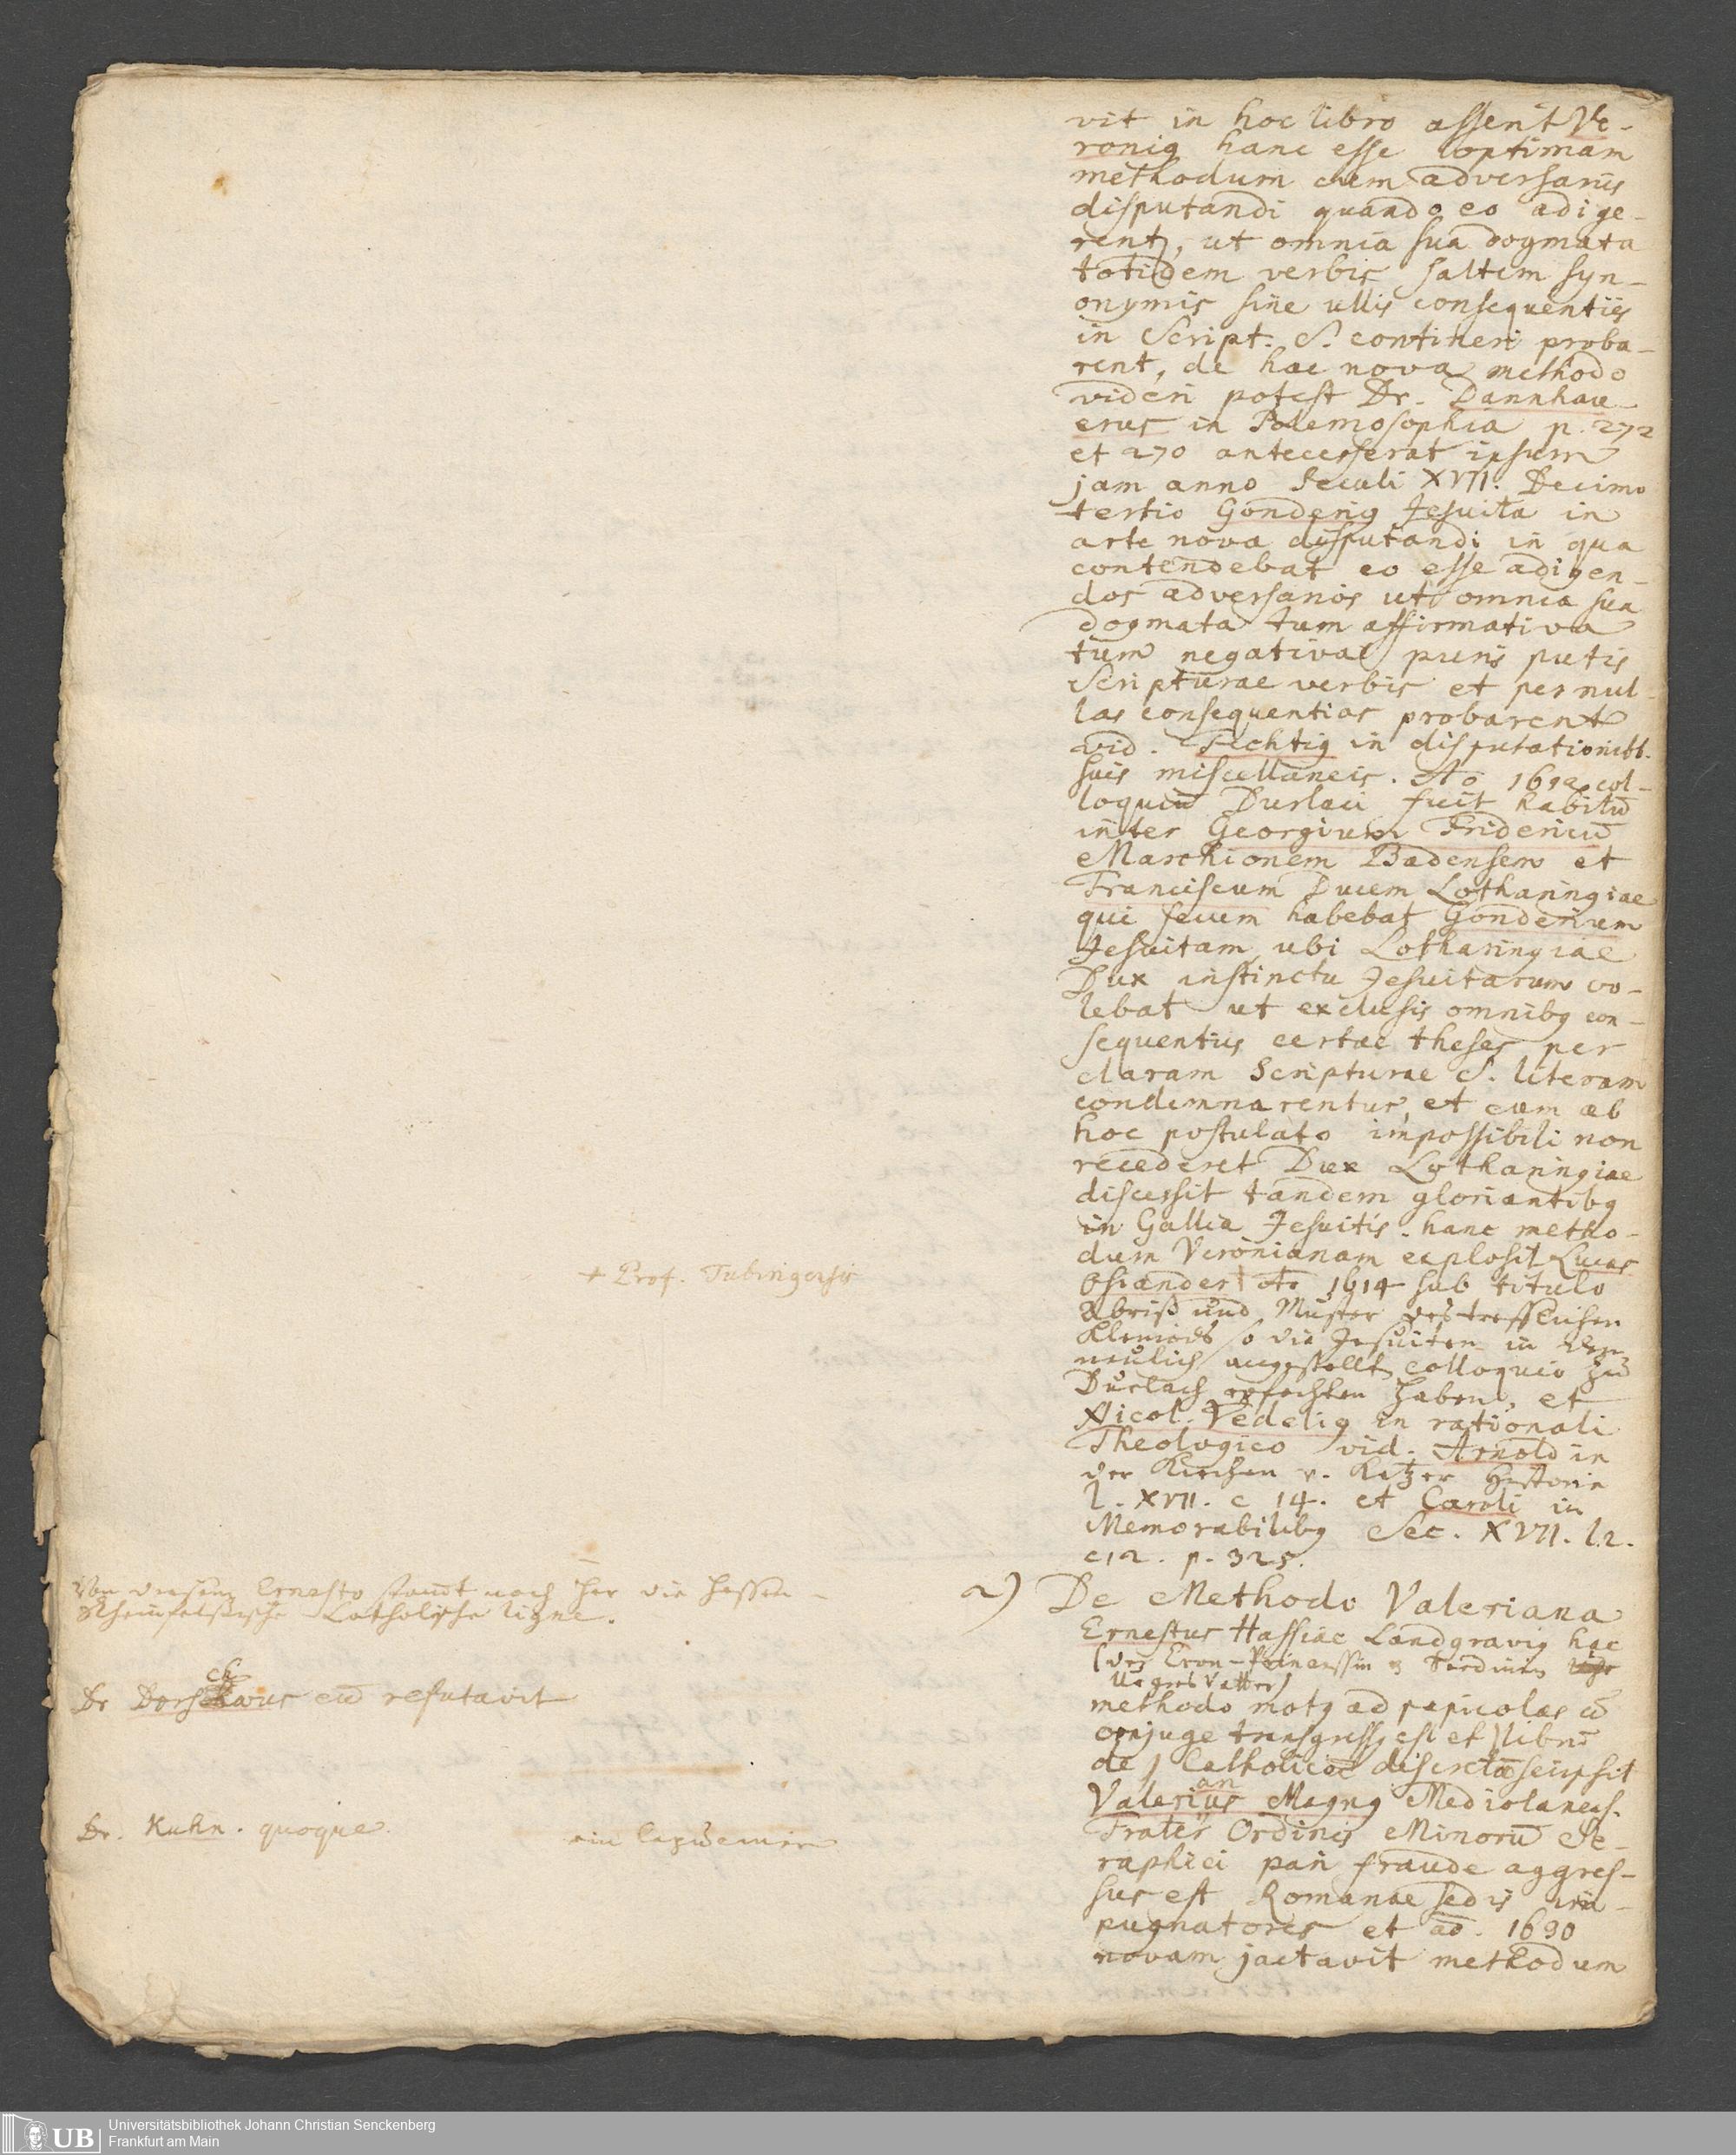 vit in hoc libro asserit Ve-
roniꝯ hanc esse optimam
methodum cum adversariis
disputandi quando eo adige-
rentꝰ, ut omnia sua dogmata
totidem verbis saltem syn-
onymis sine ullis consequentiis
in Script. S. contineri proba-
rent, de hac nova methodo
videri potest Dr. Dannhau-
erus in Polemosophia p. 272
et 270 antecesserat ipsum
jam anno Seculi XVII. Decimo
tertio Gonderiꝯ Jesuita in
arte nova disputandi in qua
contendebat eo esse adigen-
dos adversarios ut omnia sua
dogmata tum affirmativa
tum negativa puris putis
Scripturae verbis et per nul-
las consequentias probarent
vid. Fechtiꝯ in disputationibꝯ.
suis miscellaneis. Aō 1612 col-
loquiū Durlaci fuit habitū
inter Georgium Fridericū
Marchionem Badensem et
Franciscum Ducem Lotharingiae
qui secum habebat Gonderium
Jesuitam, ubi Lotharingiae
Dux instinctu Jesuitarum vo-
lebat ut exclusis omnibꝯ con-
sequentiis certae theses per
claram Scripturae S. literam
condemnarentur, et cum ab
hoc postulato impossibili non
recederet Dux Lotharingiae
discessit tandem gloriantibꝯ
in Gallia Jesuitis. hanc metho-
dum Veronianam explosit Lucas
Osiander † Ao 1614 sub titulo
+ Prof. Tubingensis
Abriß und Muster des trefflichen
Kleinods so die Jesuiten in dem
neulich angestellt colloquio zu
Durlach erfochten haben, et
Nicol. Vedeliꝯ in rationali
Theologico vid. Arnold in
der Kirchen u. Ketzer Historie
l. XVII. c 14. et Caroli in
Memorabilibꝯ Sec. XVII. l.2.
c12. p. 325.
2) De Methodo Valeriana
Von diesem Ernesto stamt noch her die Hessen-
Rheinfelsische Catholische ligne.
Ernestus Hassiae Landgraviꝯ hac
(der Cron-Prinzessin v Sardinien
Ur gros Vatter)
methodo motꝯ ad papicolas cū
conjuge transgressꝯ est et librū
de Catholico discreto scripsit
Dr Dorscheus eū refutavit
ch
Valerius Magnꝯ Mediolanens.
an
Frater Ordinis Minorū Se-
Dr. Kuhn. quoque.
ein Capuciner
raphici pari fraude aggres-
sus est Romanae sedis im-
pugnatores et aō. 1630
novam jactavit methodum
Universitätsbibliothek Johann Christian Senckenberg
Frankfurt am Main
UB